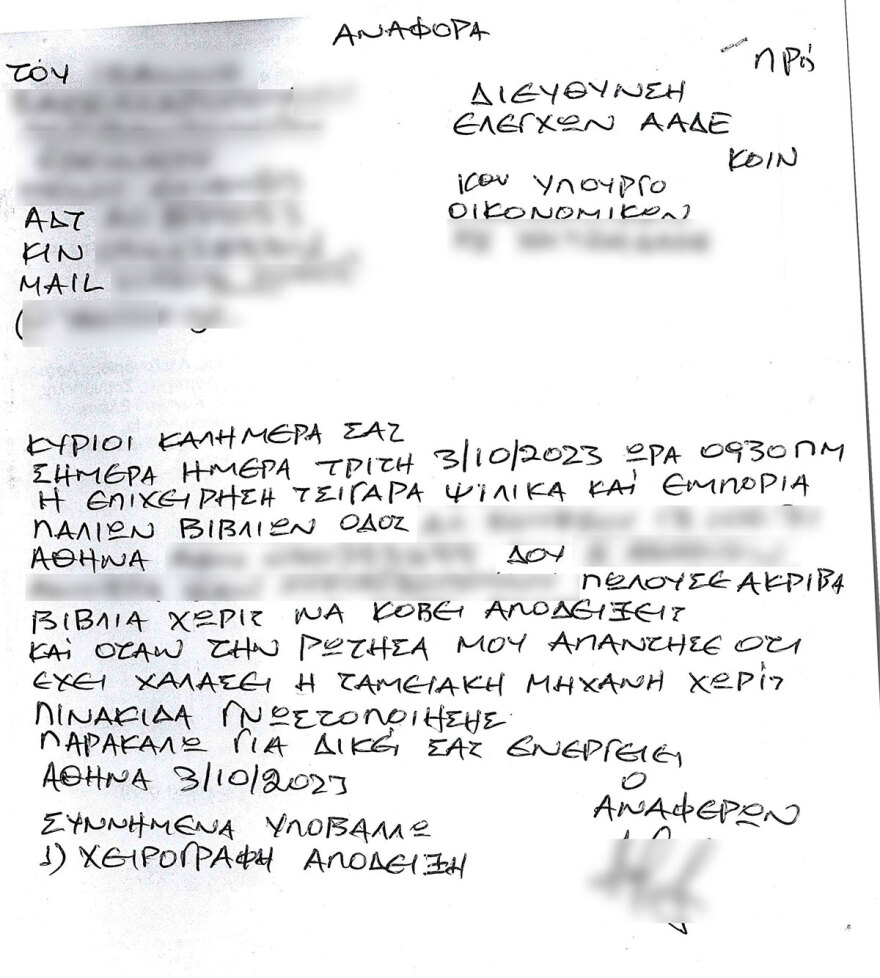 ΑΝΑΦΟΡΑ
ΠΡΟΣ
ΤΟΥ
ΔΙΕΥΘΥΝΣΗ
ΕΛΕΓΧΩΝ ΑΑΔΕ
ΚΟΙΝ
ΥΠΟΥΡΓΟ
ΟΙΚΟΝΟΜΙΚΩΝ
ΑΔΤ
ΚΙΝ
MAIL
ΚΥΡΙΟΙ ΚΑΛΗΜΕΡΑ ΣΑΣ
ΣΗΜΕΡΑ ΗΜΕΡΑ ΤΡΙΤΗ 3/10/2023 ΩΡΑ 0930ΠΜ
Η ΕΠΙΧΕΙΡΗΣΗ ΤΣΙΓΑΡΑ ΨΙΛΙΚΑ ΚΑΙ ΕΜΠΟΡΙΑ
ΠΑΛΙΩΝ ΒΙΒΛΙΩΝ ΟΔΟΣ
ΑΘΗΝΑ ΔΟΥ
ΠΩΛΟΥΣΕ ΑΚΡΙΒΑ
ΒΙΒΛΙΑ ΧΩΡΙΣ ΝΑ ΚΟΒΕΙ ΑΠΟΔΕΙΞΕΙΣ
ΚΑΙ ΟΤΑΝ ΤΗΝ ΡΩΤΗΣΑ ΜΟΥ ΑΠΑΝΤΗΣΕ ΟΤΙ
ΕΧΕΙ ΧΑΛΑΣΕΙ Η ΤΑΜΕΙΑΚΗ ΜΗΧΑΝΗ ΧΩΡΙΣ
ΠΙΝΑΚΙΔΑ ΓΝΩΣΤΟΠΟΙΗΣΗΣ
ΠΑΡΑΚΑΛΩ ΓΙΑ ΔΙΚΕΣ ΣΑΣ ΕΝΕΡΓΕΙΕΣ
ΑΘΗΝΑ 3/10/2023
Ο
ΑΝΑΦΕΡΩΝ
ΣΥΝΝΗΜΕΝΑ ΥΠΟΒΑΛΛΩ
1) ΧΕΙΡΟΓΡΑΦΗ ΑΠΟΔΕΙΞΗ